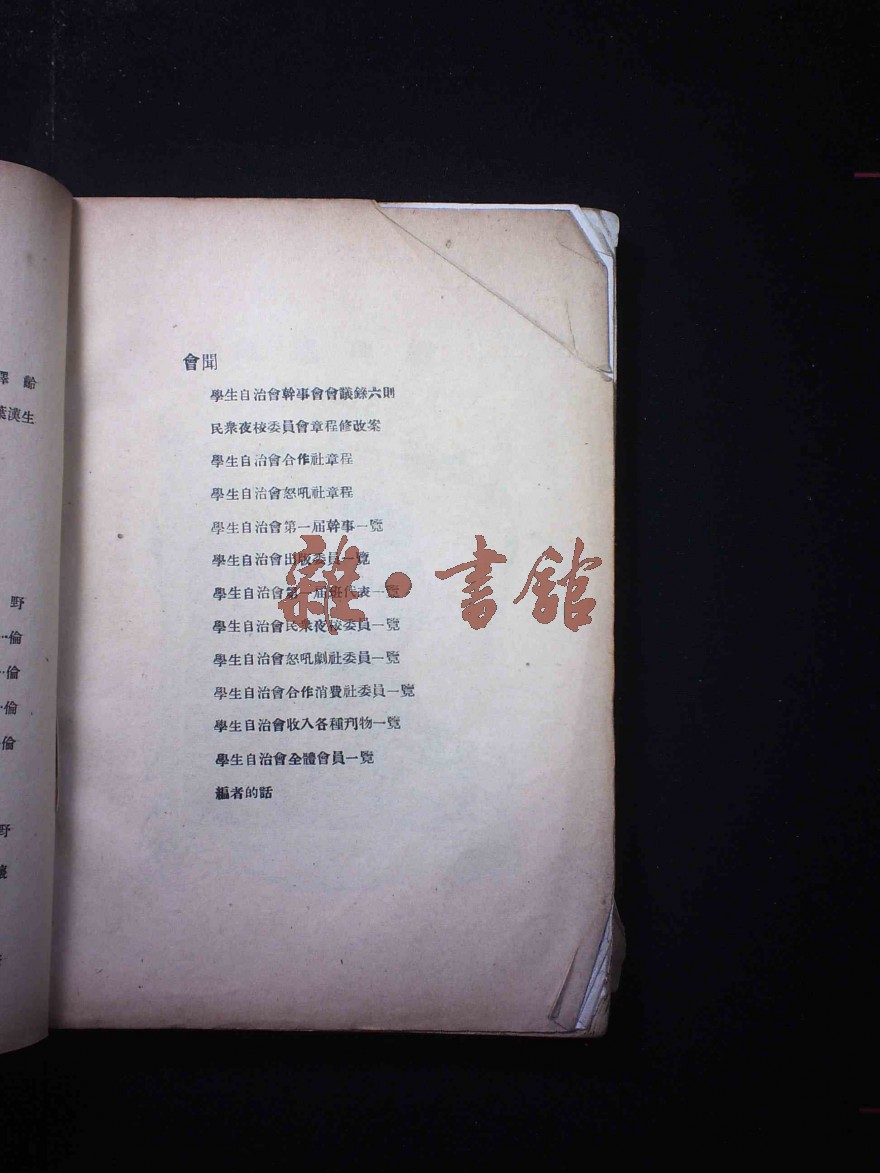 澤齡
葉漢生
野
倫
倫
倫
倫
野
會聞
學生自治會幹事會會議錄六則
民衆夜校委員會章程修改案
學生自治會合作社章程
學生自治會怒吼社章程
學生自治會第一屆幹事一覽
學生自治會出版委員一覽
學生自治會第一屆班代表一覽
學生自治會民衆夜校委員一覽
學生自治會怒吼劇社委員一覽
學生自治會合作消費社委員一覽
學生自治會收入各種刋物一覽
學生自治會全體會員一覽
編者的話
雜·書館